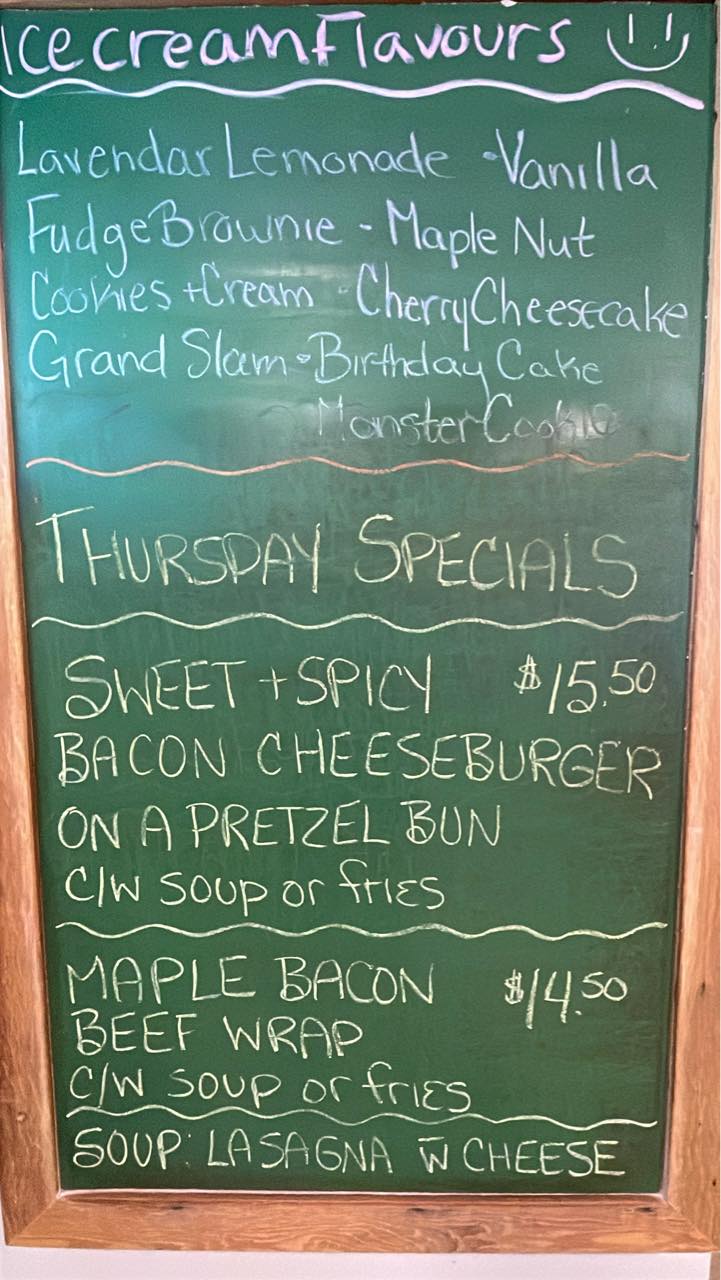 Ice cream Flavours
Lavendar Lemonade - Vanilla
Fudge Brownie - Maple Nut
Cookies + Cream - Cherry Cheesecake
Grand Slam - Birthday Cake
Monster Cookie
THURSDAY SPECIALS
SWEET + SPICY $15.50
BACON CHEESEBURGER
ON A PRETZEL BUN
C/W SOUP or fries
MAPLE BACON $14.50
BEEF WRAP
C/W SOUP or fries
SOUP: LASAGNA W̅ CHEESE